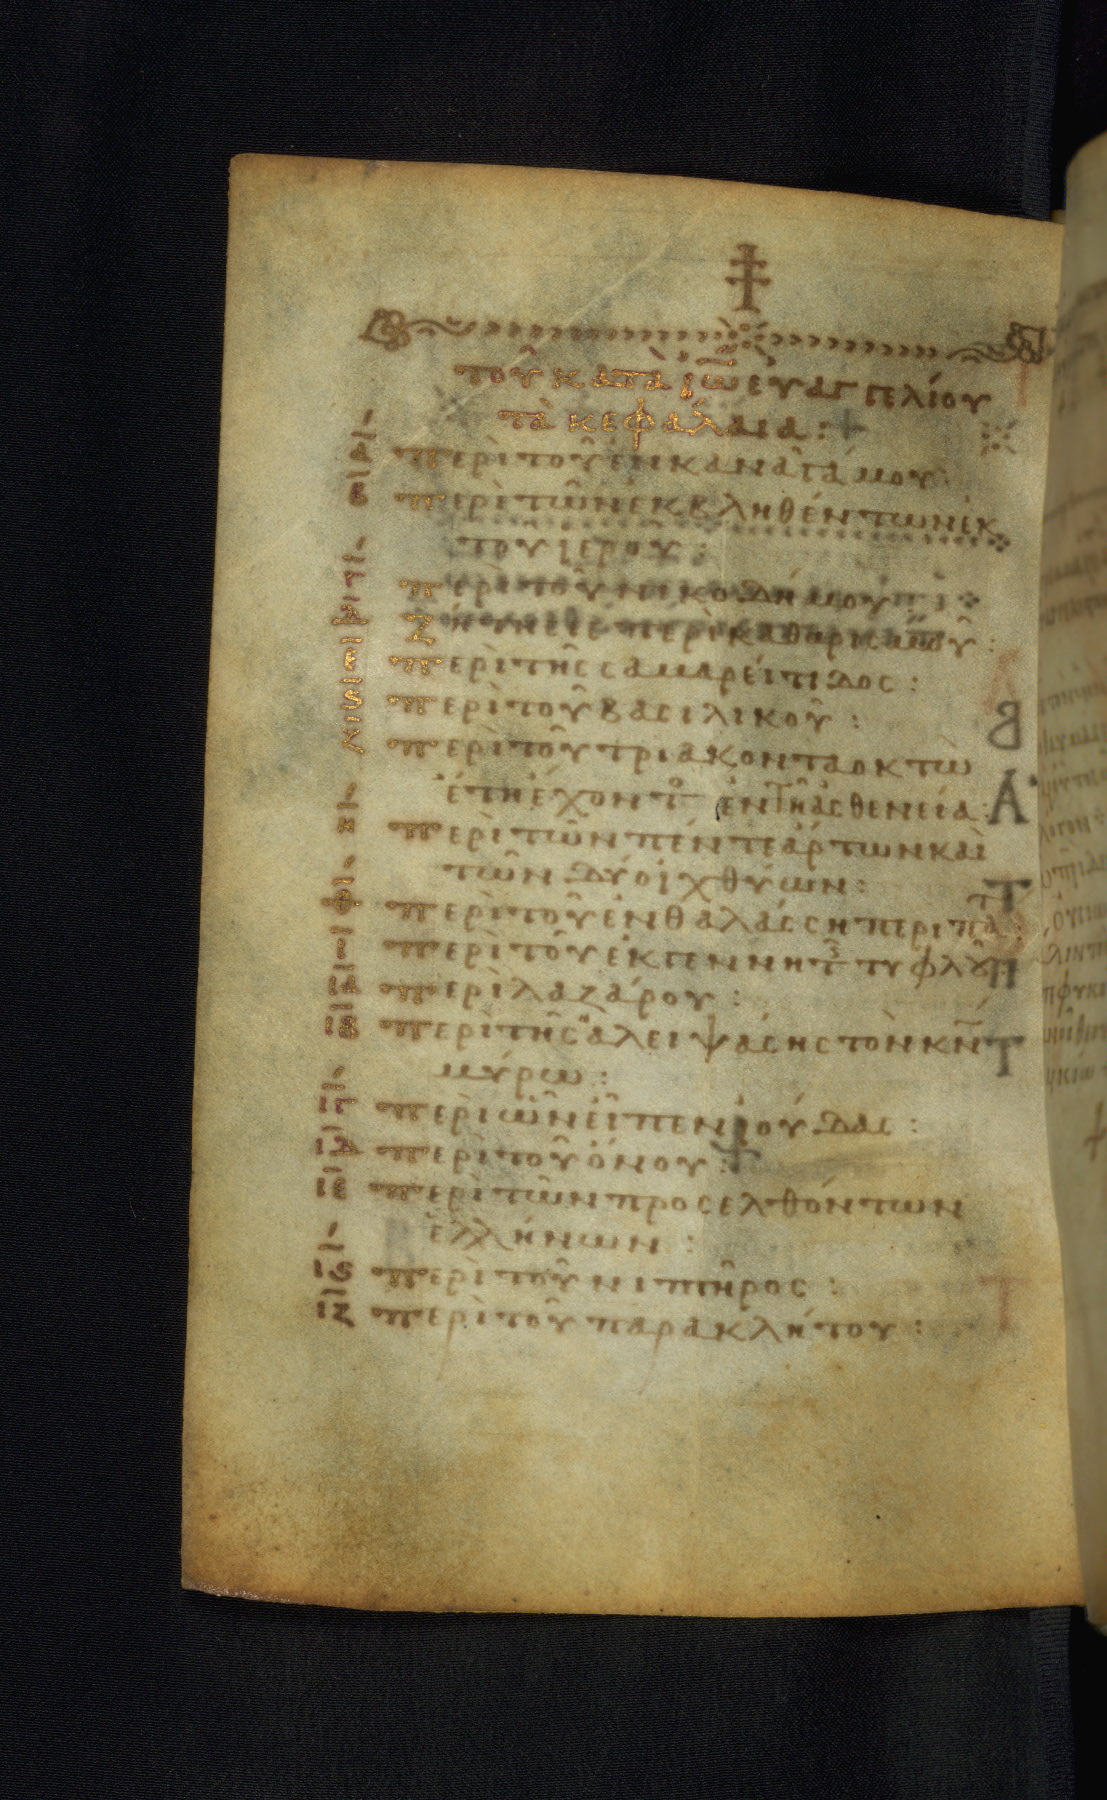 τοῦ κατὰ ἰω̅ εὐαγγελίου
τὰ κεφάλαια :
α περὶ τοῦ ἐν κανᾶ γάμου
β περὶ τῶν ἐκβληθέντων ἐκ
τοῦ ἱεροῦ :
γ περὶ τοῦ νικοδήμου
δ ζήτησις περὶ καθαρισμοῦ :
ε περὶ τῆς σαμαρείτιδος :
ϛ περὶ τοῦ βασιλικοῦ :
ζ περὶ τοῦ τριακονταοκτὼ
ἔτη ἔχοντ ἐν τῆ ἀσθενεία :
η περὶ τῶν πέντε ἄρτων καὶ
τῶν δύο ἰχθύων :
θ περὶ τοῦ ἐν θαλάσση περιπα
ι περὶ τοῦ ἐκ γεννητ τυφλοῦ
ια περὶ λαζάρου :
ιβ περὶ τῆς ἀλειψάσης τὸν κ̅ν̅
μύρω :
ιγ περὶ ὧν εἶπεν ἰούδας :
ιδ περὶ τοῦ ὄνου :
ιε περὶ τῶν προσελθόντων
ἑλλήνων :
ιϛ περὶ τοῦ νιπτῆρος :
ιζ περὶ τοῦ παρακλήτου :